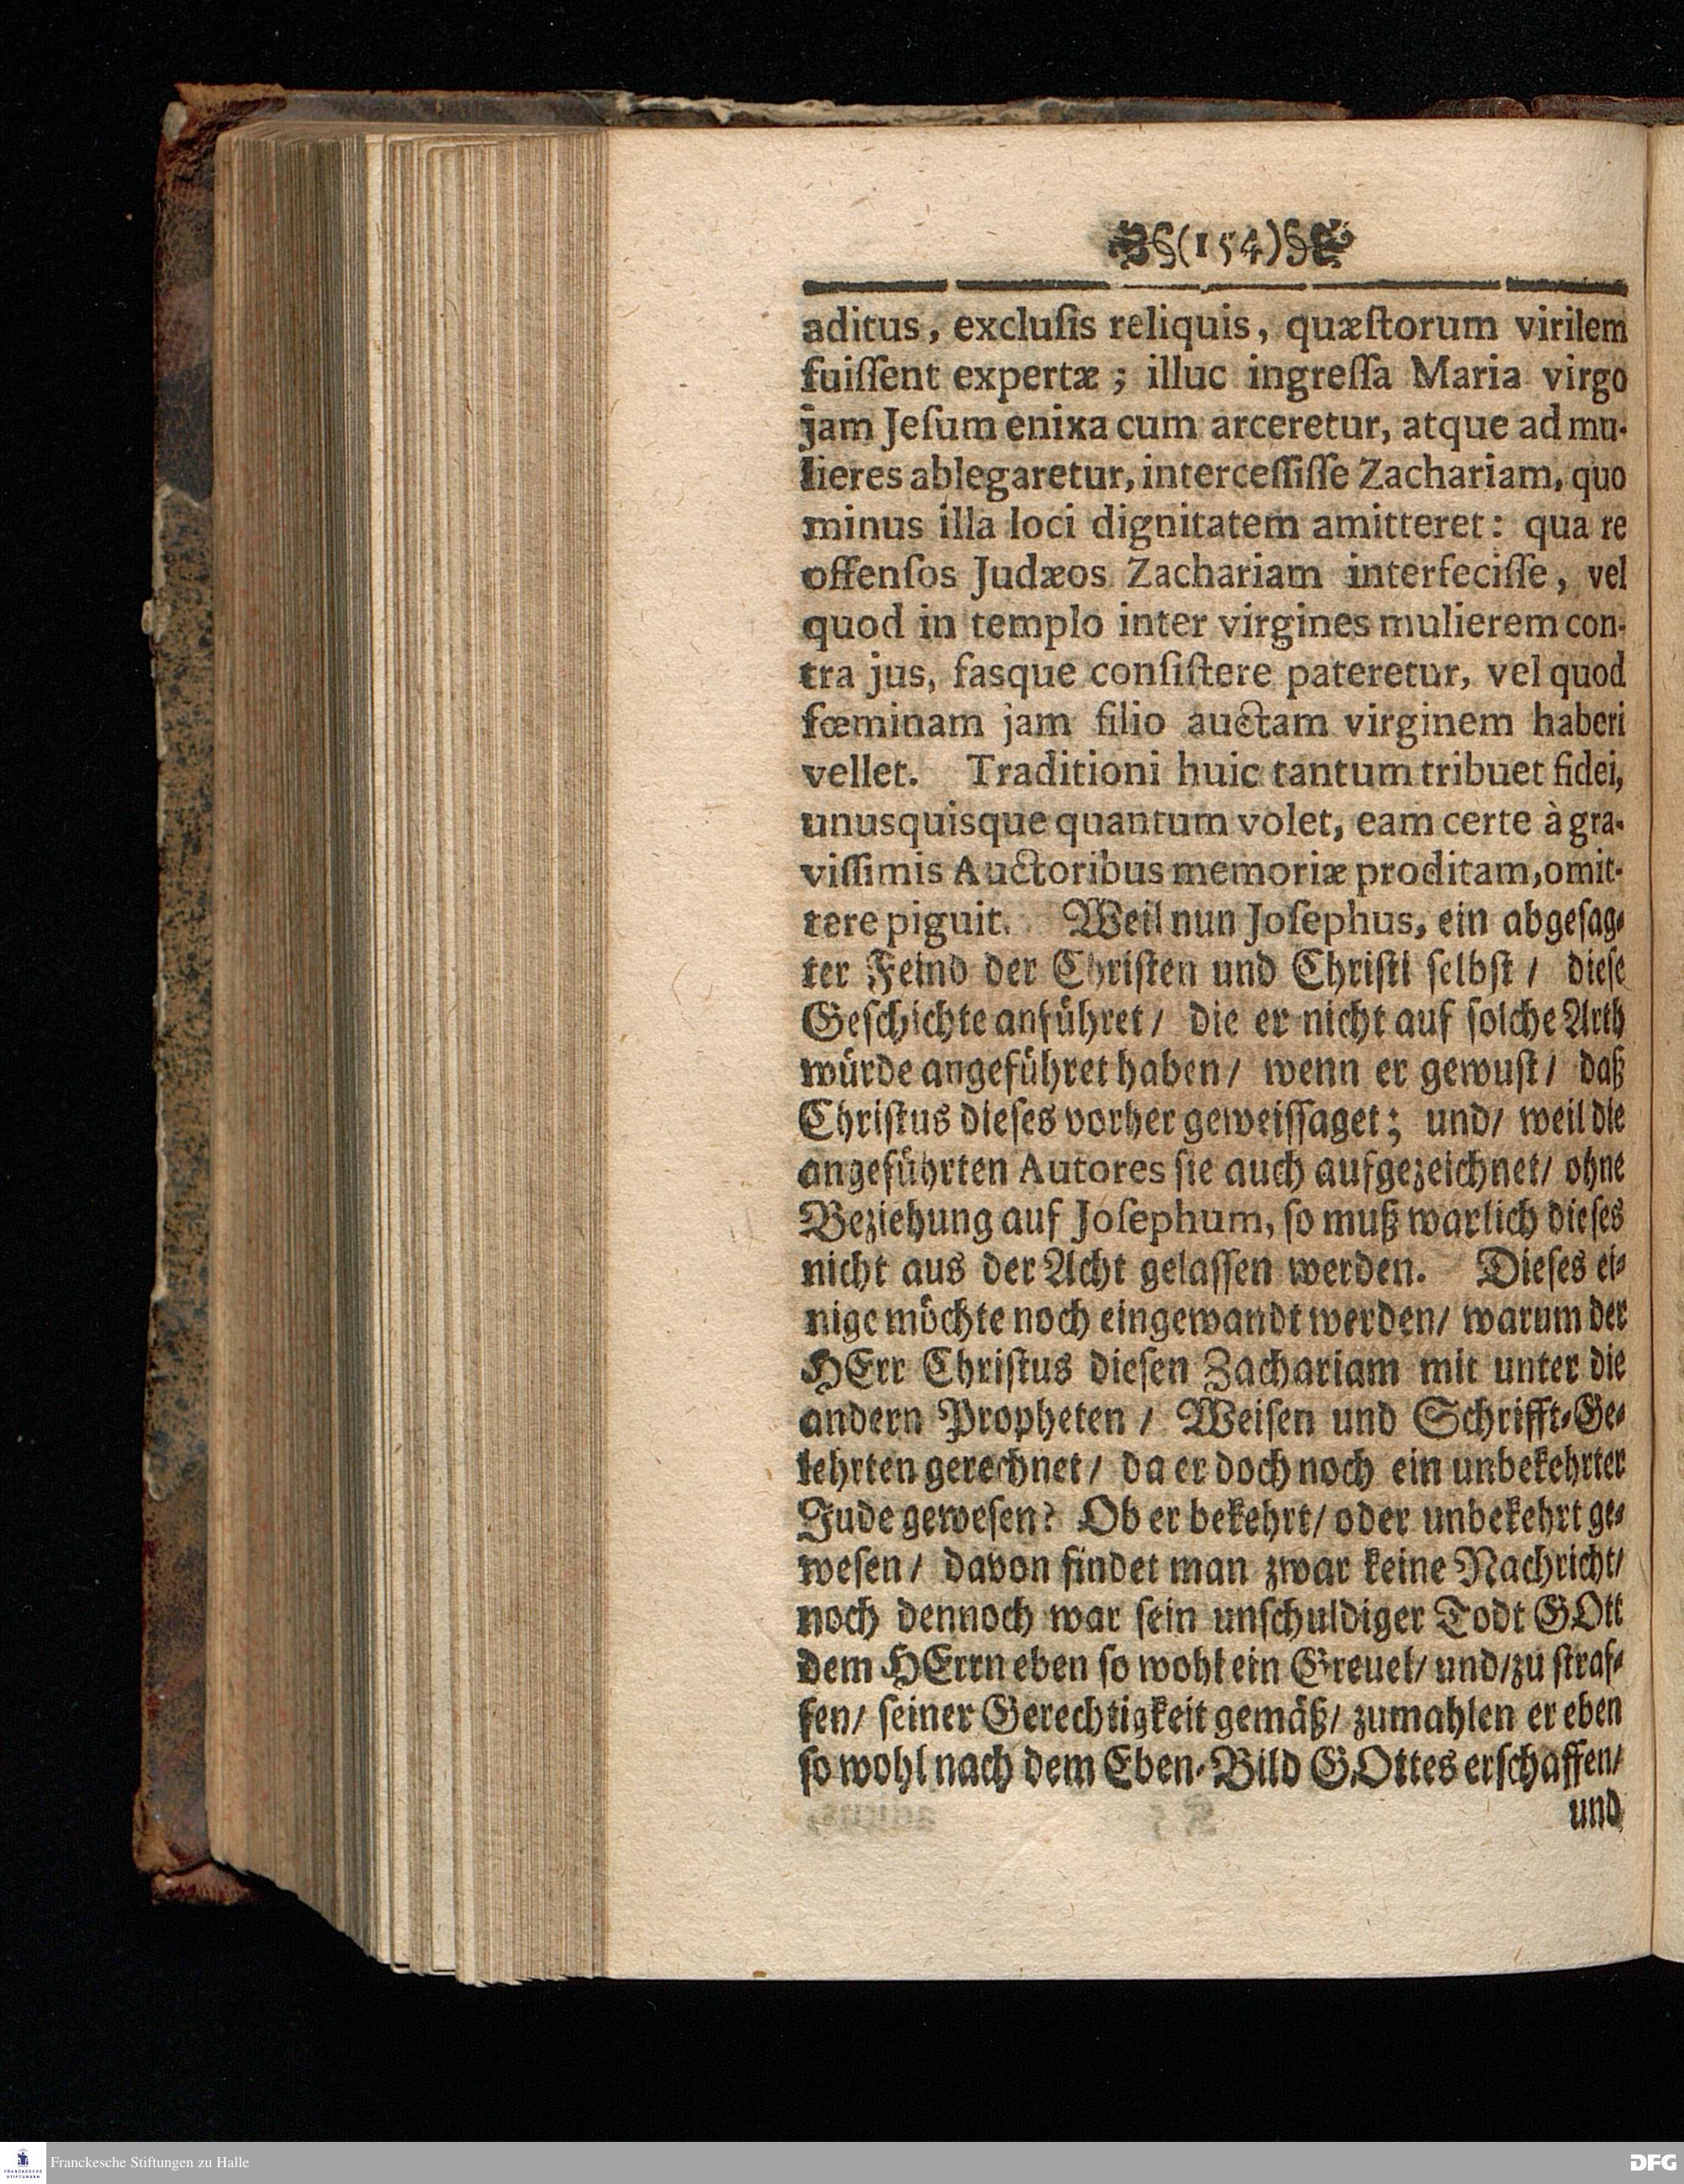 (154)
aditus, exclusis reliquis, quæstorum virilem
fuissent expertæ; illuc ingressa Maria virgo
jam Jesum enixa cum arceretur, atque ad mu-
lieres ablegaretur, intercessisse Zachariam, quo
minus illa loci dignitatem amitteret: qua re
offensos Judæos Zachariam interfecisse, vel
quod in templo inter virgines mulierem con-
tra jus, fasque consistere pateretur, vel quod
fœminam jam filio auctam virginem haberi
vellet. Traditioni huic tantum tribuet fidei,
unusquisque quantum volet, eam certe à gra-
vissimis Auctoribus memoriæ proditam, omit-
tere piguit. Weil nun Josephus, ein abgesag-
ter Feind der Christen und Christi selbst / diese
Geschichte anführet / die er nicht auf solche Arth
würde angeführet haben / wenn er gewust / daß
Christus dieses vorher geweissaget; und / weil die
angeführten Autores sie auch aufgezeichnet / ohne
Beziehung auf Josephum, so muß warlich dieses
nicht aus der Acht gelassen werden. Dieses ei-
nige möchte noch eingewandt werden / warum der
HErr Christus diesen Zachariam mit unter die
andern Propheten / Weisen und Schrifft-Ge-
lehrten gerechnet / da er doch noch ein unbekehrter
Jude gewesen? Ob er bekehrt / oder unbekehrt ge-
wesen / davon findet man zwar keine Nachricht /
noch dennoch war sein unschuldiger Todt GOtt
dem HErrn eben so wohl ein Greuel / und / zu straf-
fen / seiner Gerechtigkeit gemäß / zumahlen er eben
so wohl nach dem Eben-Bild GOttes erschaffen /
und
Franckesche Stiftungen zu Halle
DFG